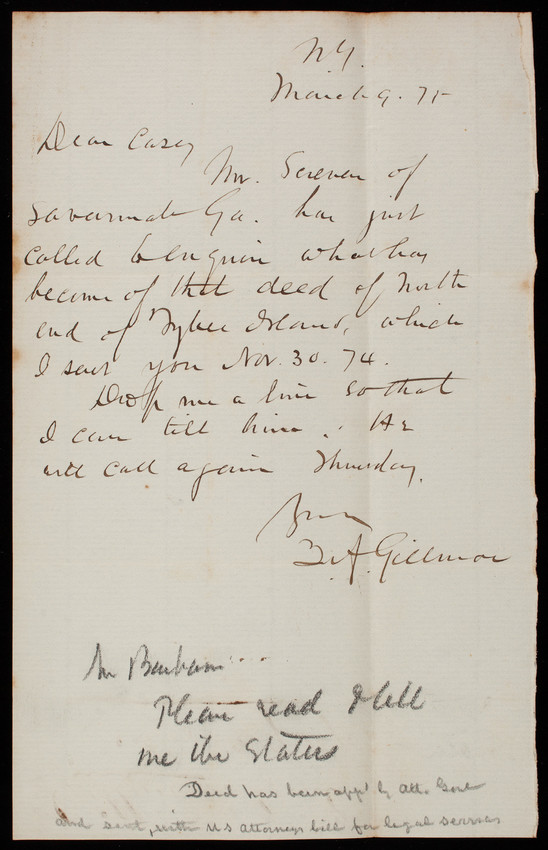 N.Y.
March 9. 75
Dear Casey
Mr. Screven of
Savannah Ga. has just
called to enquire what has
become of that deed of North
end of Tybee Island, which
I sent you Nov. 30. 74.
Drop me a line so that
I can tell him. He
will call again Thursday.
Yours
Q. A. Gillmore
Mr
Please read & tell
me the status
Deed has been app'd by Att. Genl
and sent, with US attorneys bill for legal services